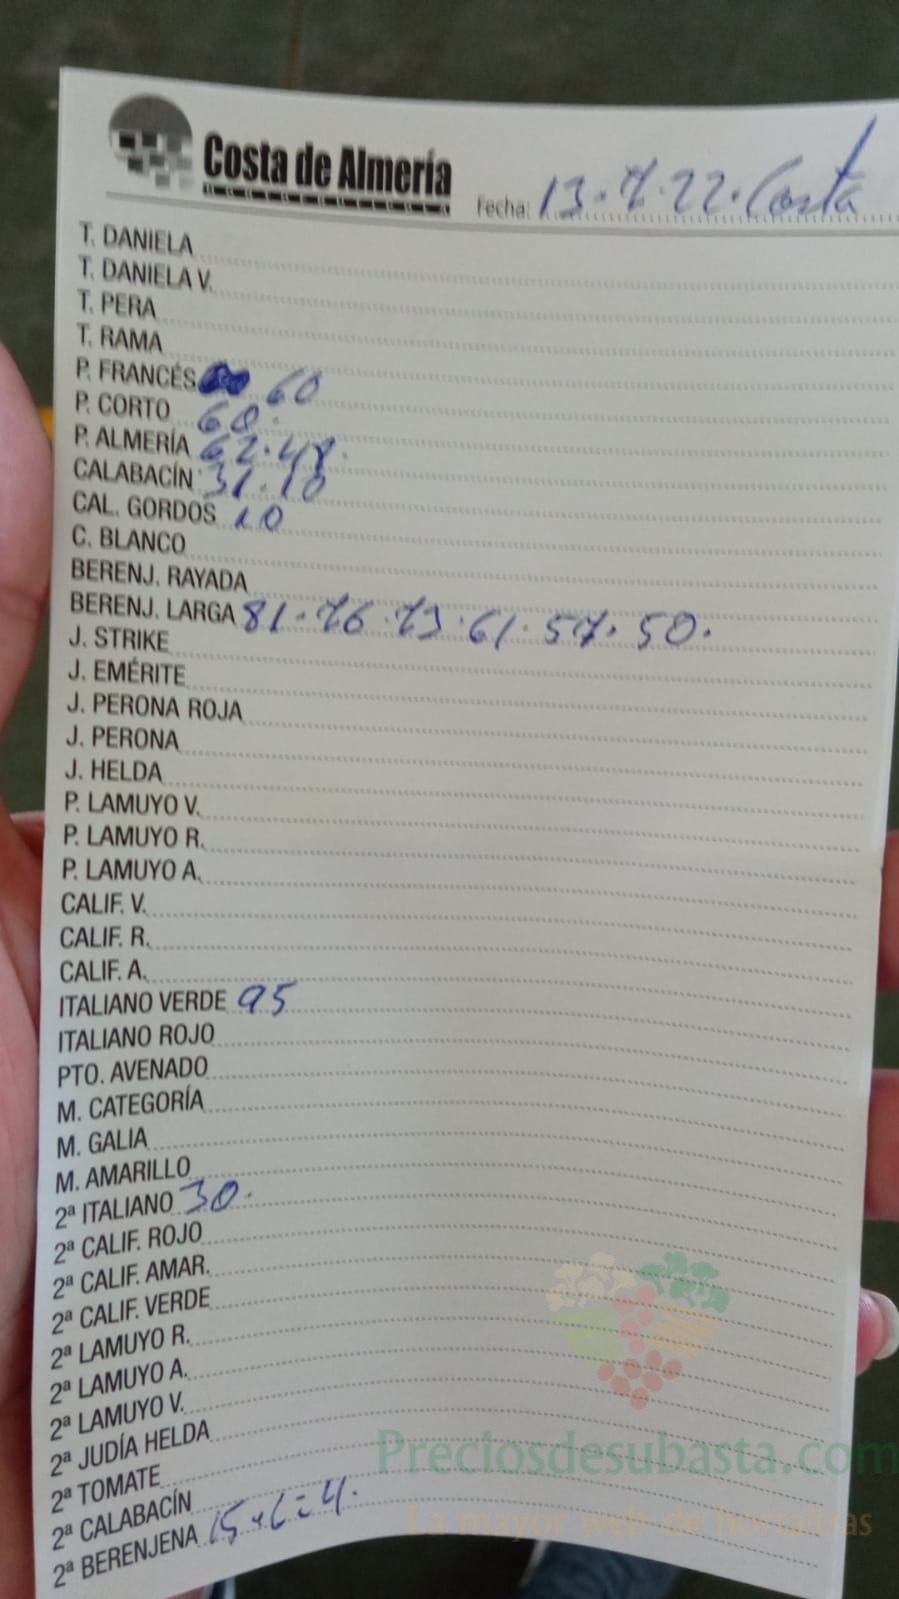 Costa de Almería
Fecha: 13.7.22. Costa
T. DANIELA
T. DANIELA V.
T. PERA
T. RAMA
P. FRANCÉS 60
P. CORTO 60.
P. ALMERÍA 62.48.
CALABACÍN 31.10
CAL. GORDOS 10
C. BLANCO
BERENJ. RAYADA
BERENJ. LARGA 81.76.73.61.57.50.
J. STRIKE
J. EMÉRITE
J. PERONA ROJA
J. PERONA
J. HELDA
P. LAMUYO V.
P. LAMUYO R.
P. LAMUYO A.
CALIF. V.
CALIF. R.
CALIF. A.
ITALIANO VERDE 95
ITALIANO ROJO
PTO. AVENADO
M. CATEGORÍA
M. GALIA
M. AMARILLO
2ª ITALIANO 30.
2ª CALIF. ROJO
2ª CALIF. AMAR.
2ª CALIF. VERDE
2ª LAMUYO R.
2ª LAMUYO A.
2ª LAMUYO V.
2ª JUDÍA HELDA
2ª TOMATE
2ª CALABACÍN
2ª BERENJENA
Preciosdesubasta.com
La mayor web de hortalizas